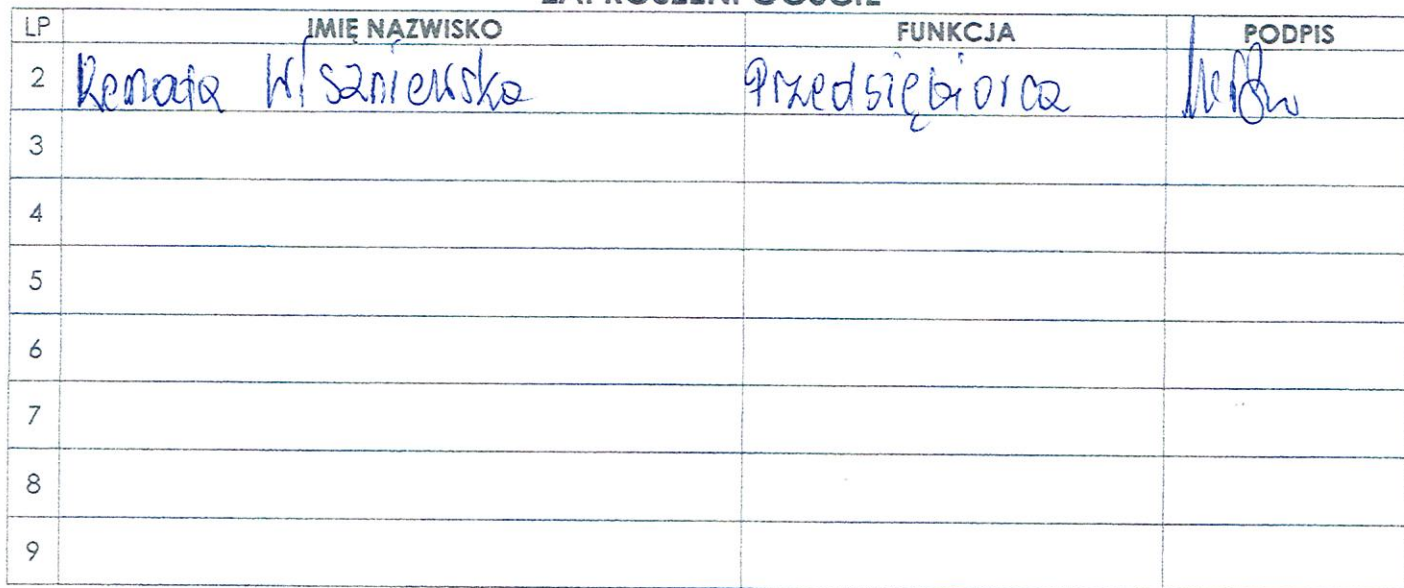 ZAPROSZENI GOŚCIE
LP IMIĘ NAZWISKO FUNKCJA PODPIS
2 Renata Wiszniewska Przedsiębiorca
3
4
5
6
7
8
9